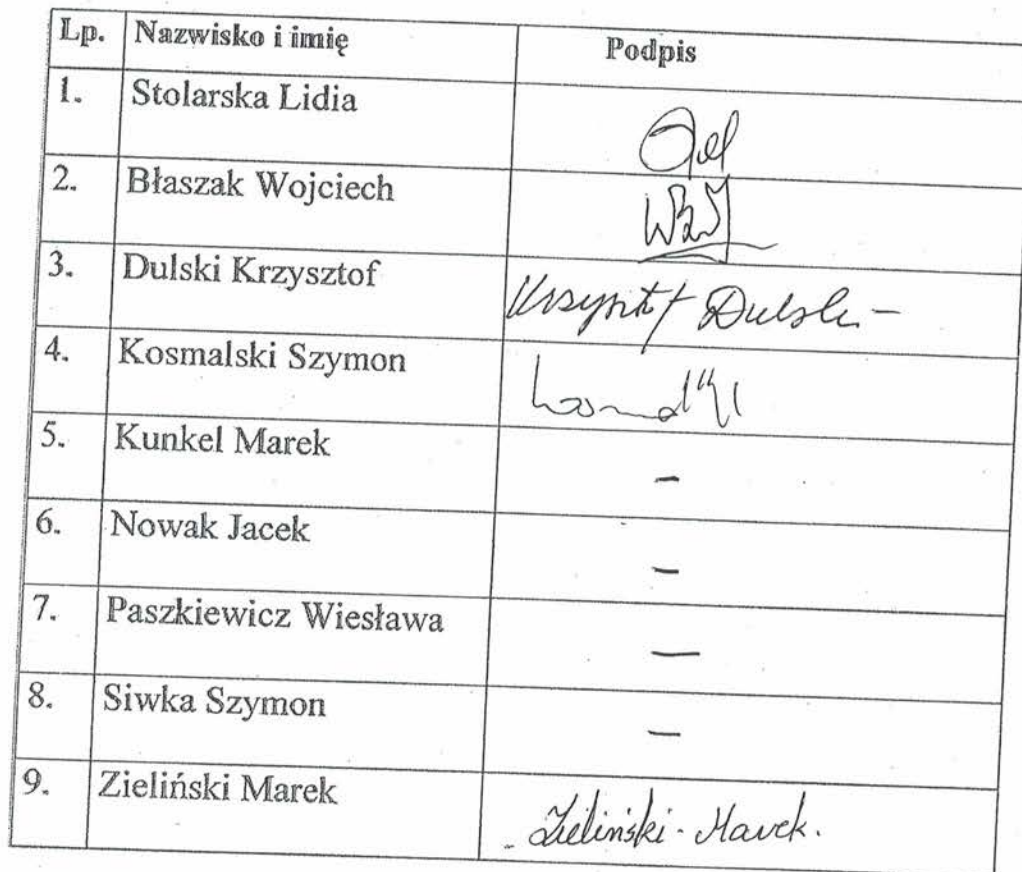 Lp. Nazwisko i imię Podpis
1. Stolarska Lidia
2. Błaszak Wojciech
3. Dulski Krzysztof Krzysztof Dulski -
4. Kosmalski Szymon
5. Kunkel Marek -
6. Nowak Jacek -
7. Paszkiewicz Wiesława -
8. Siwka Szymon -
9. Zieliński Marek Zieliński - Marek.